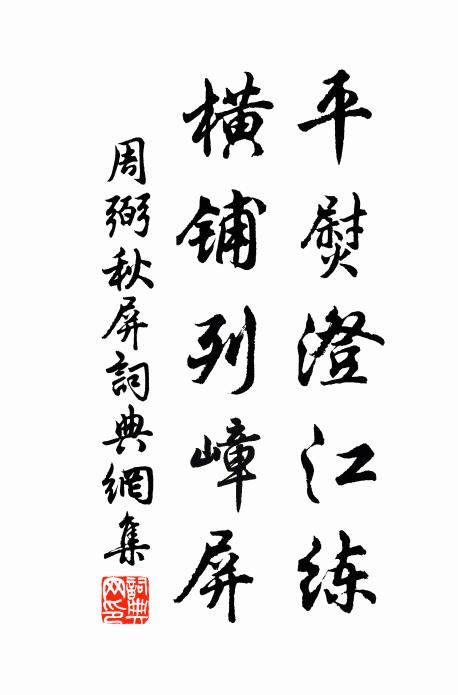 平熨澄江练
横铺列嶂屏
周弼秋屏詞典網集
詞典网印